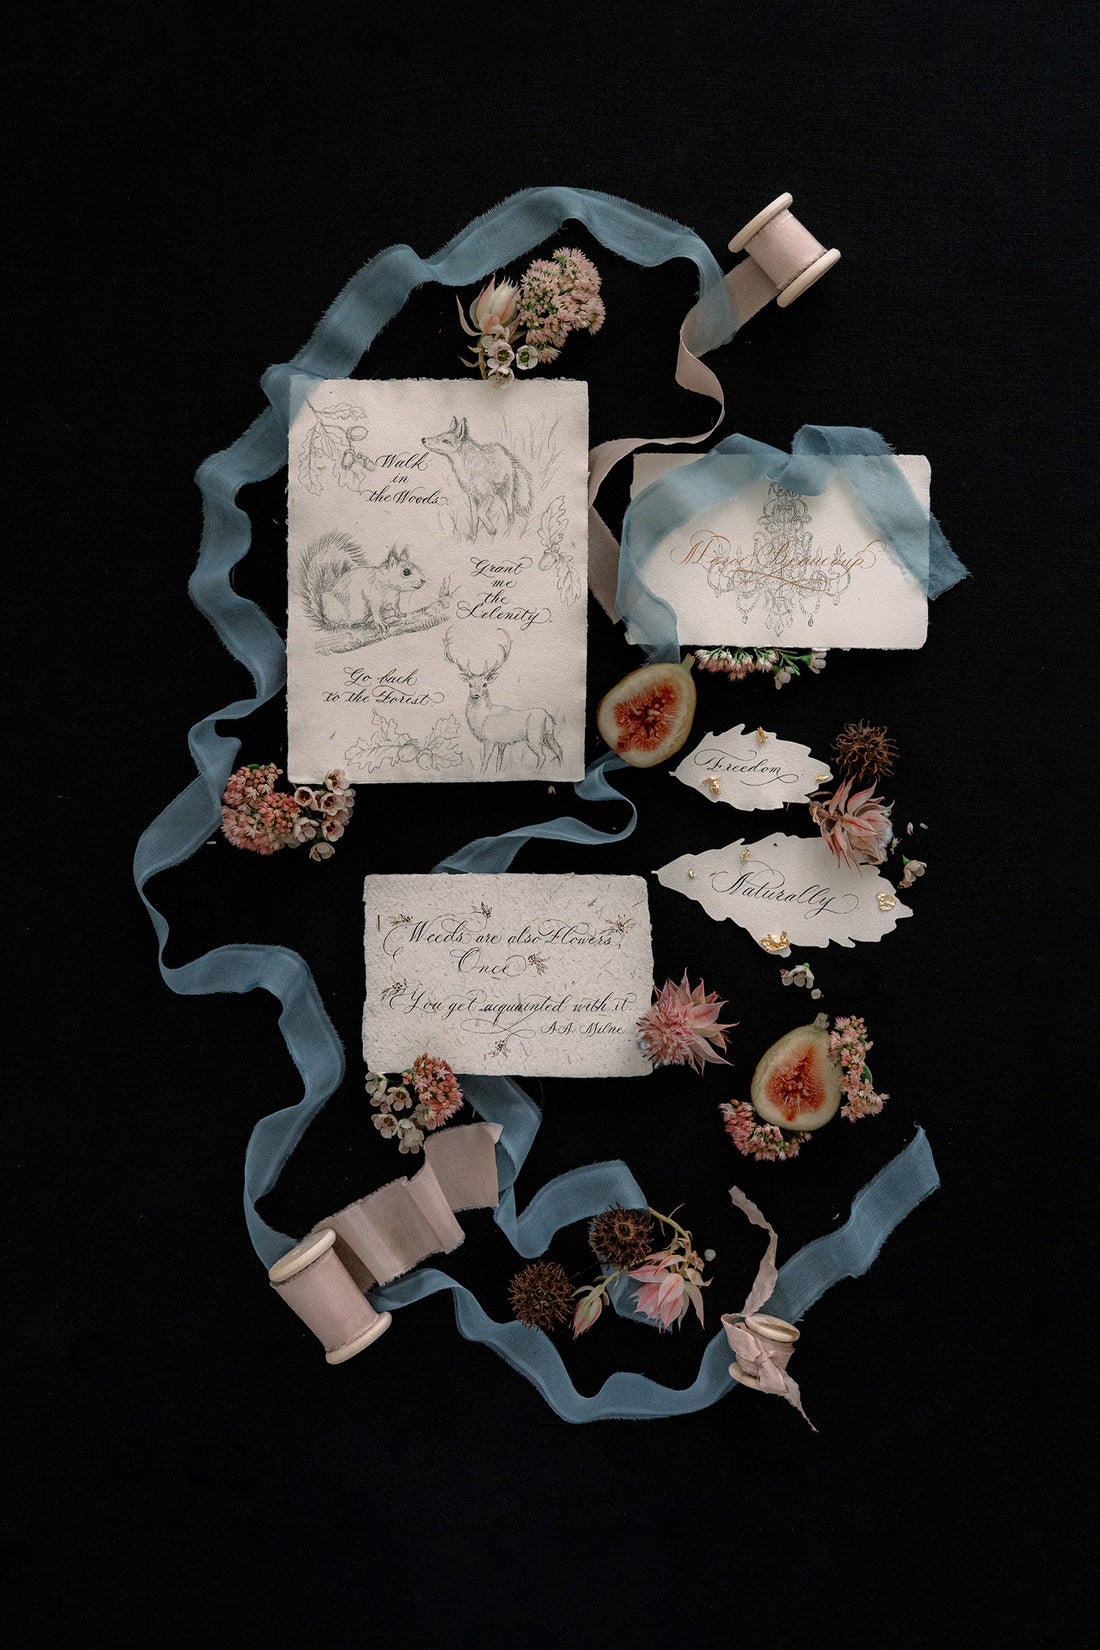 Walk
in
the Woods.
Grant
me
the
Selenity.
Go back
to the Forest.
Merci Beaucoup
Freedom
Naturally
Weeds are also Flowers,
Once
You get acquainted with it.
AA Milne